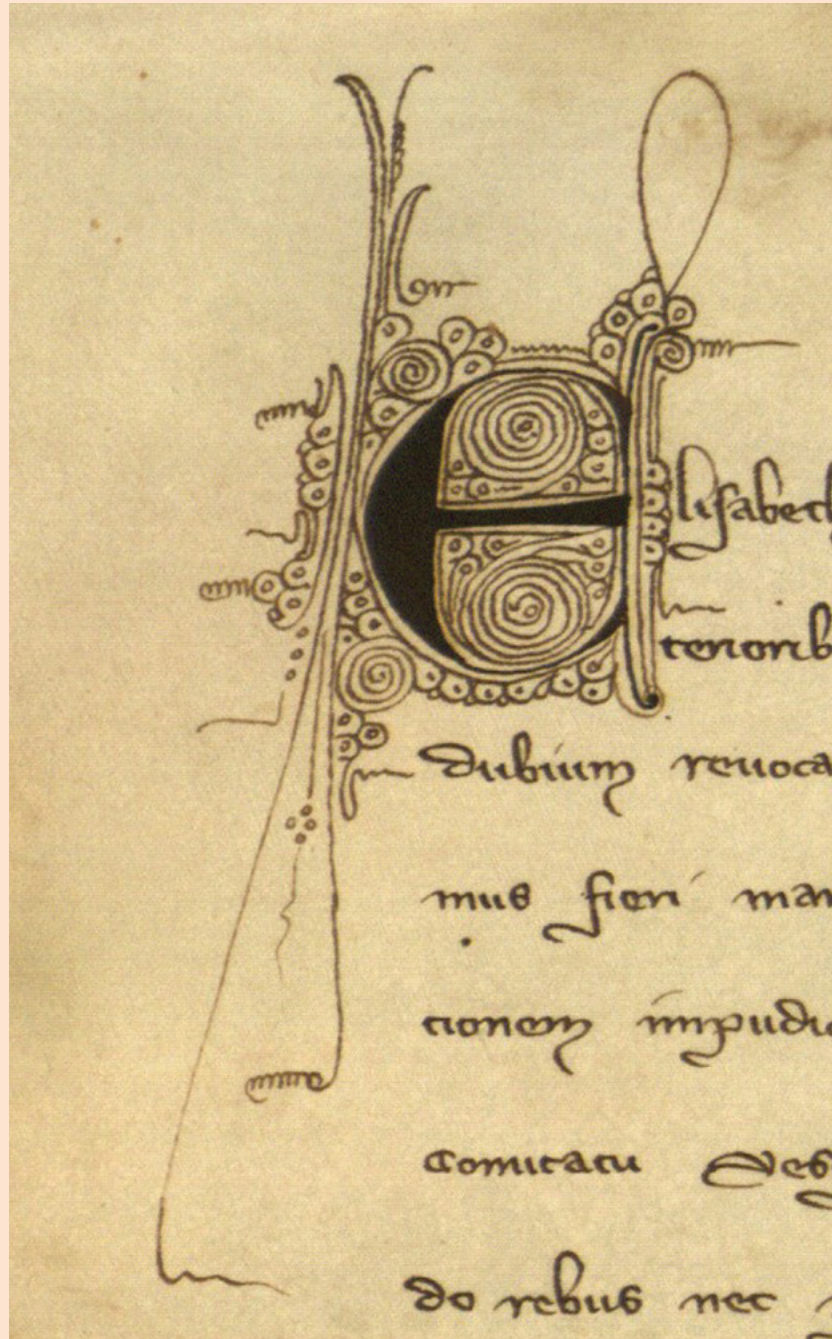 Elisabeth
tenorib
dubium reuoca
mus fieri man
cionem impudic
Comitatu Ses
do rebus nec